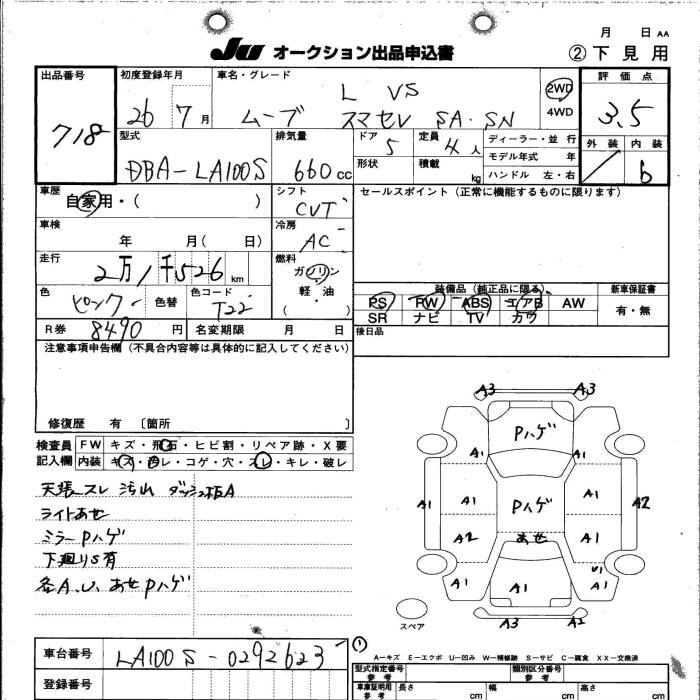 月 日 AA
JU オークション出品申込書
②下見用
出品番号
718
初度登録年月
26 7月
車名・グレード
ムーブ L VS
スマセレ SA・SN
2WD
4WD
評価点
3.5
外装 内装
b
型式
DBA-LA100S
排気量
660cc
ドア 5
形状
定員 4人
積載 kg
ディーラー・並行
モデル年式 年
ハンドル 左・右
車歴
自家用・( )
シフト
CVT
セールスポイント(正常に機能するものに限ります)
車検
年 月( 日)
冷房
AC
走行
2万1千526km
燃料
ガソリン
軽・油
( )
色
ピンク
色替
色コード
T22
装備品(純正品に限る)
PS PW ABS エアB AW
SR ナビ TV カワ
新車保証書
有・無
R券 8490円
名変期限 月 日
後日品
注意事項申告欄(不具合内容等は具体的に記入してください)
修復歴 有 〔箇所 〕
検査員
記入欄
FW キズ・飛石・ヒビ割・リペア跡・X要
内装 キズ・汚レ・コゲ・穴・スレ・キレ・破レ
天張スレ 汚れ ダッシュ板A
ライトあせ
ミラーPハゲ
下廻りS有
各A.U.あせPハゲ
A3 A3
Pハゲ
A1 A1
A1 A1 Pハゲ A1 A2
A2 あせ A1
A1 A1 U1 A1
A3 A2
スペア
A-キズ E-エクボ U-凹み W-補修跡 S-サビ C-腐食 XX-交換済
車台番号
LA100S-0292623
登録番号
①
型式指定番号
参考
類別区分番号
参考
車庫証明用
参考
長さ cm
幅 cm
高さ cm